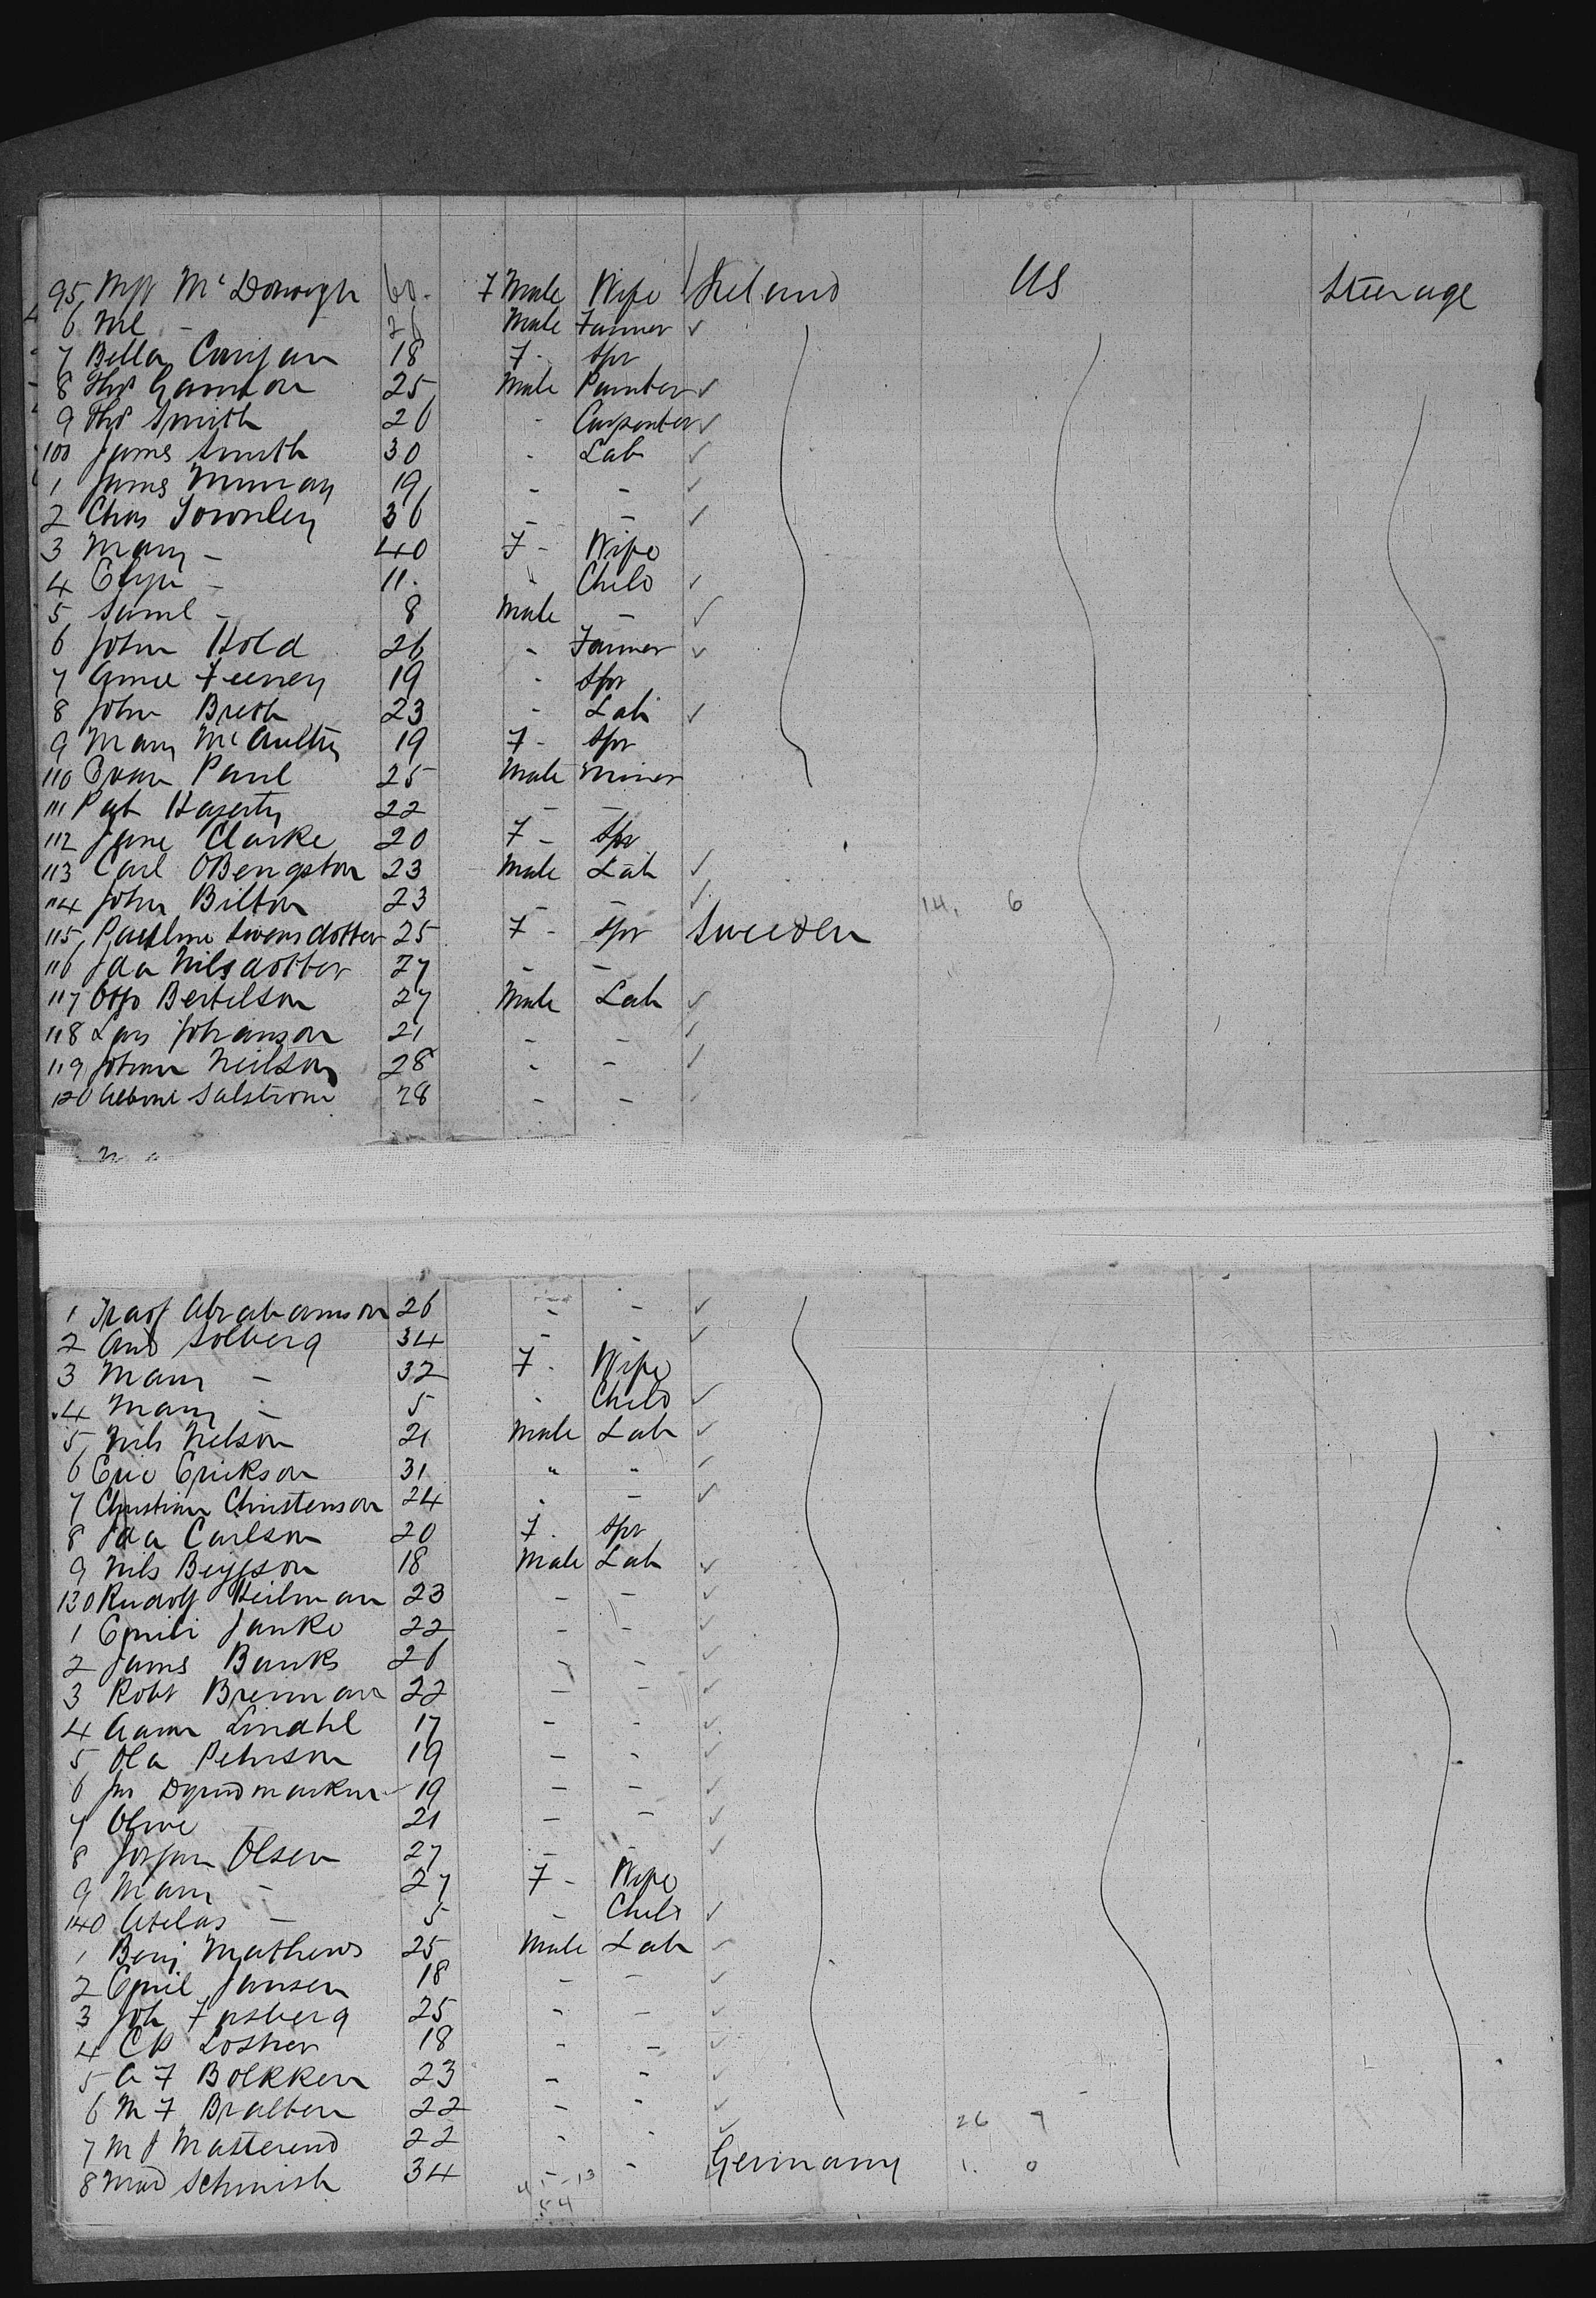 95 McDonough 60 F Male Wife Ireland US Steerage
6 Ml - Male Farmer ✓
7 Bella 18 F - Spr
8 Thos Gannon 25 Male Painter ✓
9 Thos Smith 26 - Carpenter ✓
100 James Smith 30 - Lab ✓
1 James Murray 19 - - ✓
2 Chas Townley 36 - - ✓
3 Mary - 40 F - Wife
4 Eliza - 11 " Child ✓
5 Saml - 8 Male - ✓
6 John Hold 26 - Farmer ✓
7 Annie Feeney 19 - Spr
8 John 23 - Lab ✓
9 Mary McAulty 19 F - Spr
110 Paul 25 Male Miner
111 Pat Hagerty 22 - -
112 Jane Clarke 20 F - Spr
113 Carl O Bengston 23 Male Lab ✓
114 John Bilton 23 - - ✓ 14. 6
115 Swensdotter 25 F - Spr Sweden
116 Ida Nilsdotter 27 - -
117 Otto Bertelson 27 Male Lab ✓
118 Lars Johanson 21 - - ✓
119 Johan Neilson 28 - - ✓
120 Salstrom 28 - - ✓
1 Abrahamson 26 - - ✓
2 And Solberg 34 - - ✓
3 Mary - 32 F - Wife
4 Mary - 5 - Child ✓
5 Nils Nelson 21 Male Lab ✓
6 Eric Erickson 31 " " ✓
7 Christian Christenson 24 - - ✓
8 Ida Carlson 20 F - Spr
9 Nils 18 Male Lab ✓
130 Rudolf Heilman 23 - - ✓
1 Emili Janke 22 - - ✓
2 James Banks 26 - - ✓
3 Robt Brennan 22 - - ✓
4 Lindhl 17 - - ✓
5 Ola Pehrson 19 - - ✓
6 Jns 19 - - ✓
7 Olive 21 - - ✓
8 Olsen 27 - - ✓
9 Mary - 27 F - Wife
140 - 5 - Child ✓
1 Benj Mathews 25 Male Lab ✓
2 Emil Jansen 18 - - ✓
3 Joh Forsberg 25 - - ✓
4 18 - - ✓
5 A F Bolkken 23 - - ✓
6 M F Bralten 22 - - ✓
7 M J 22 - - ✓ 26 7
8 Schmidt 34 - - Germany 1. 0
54